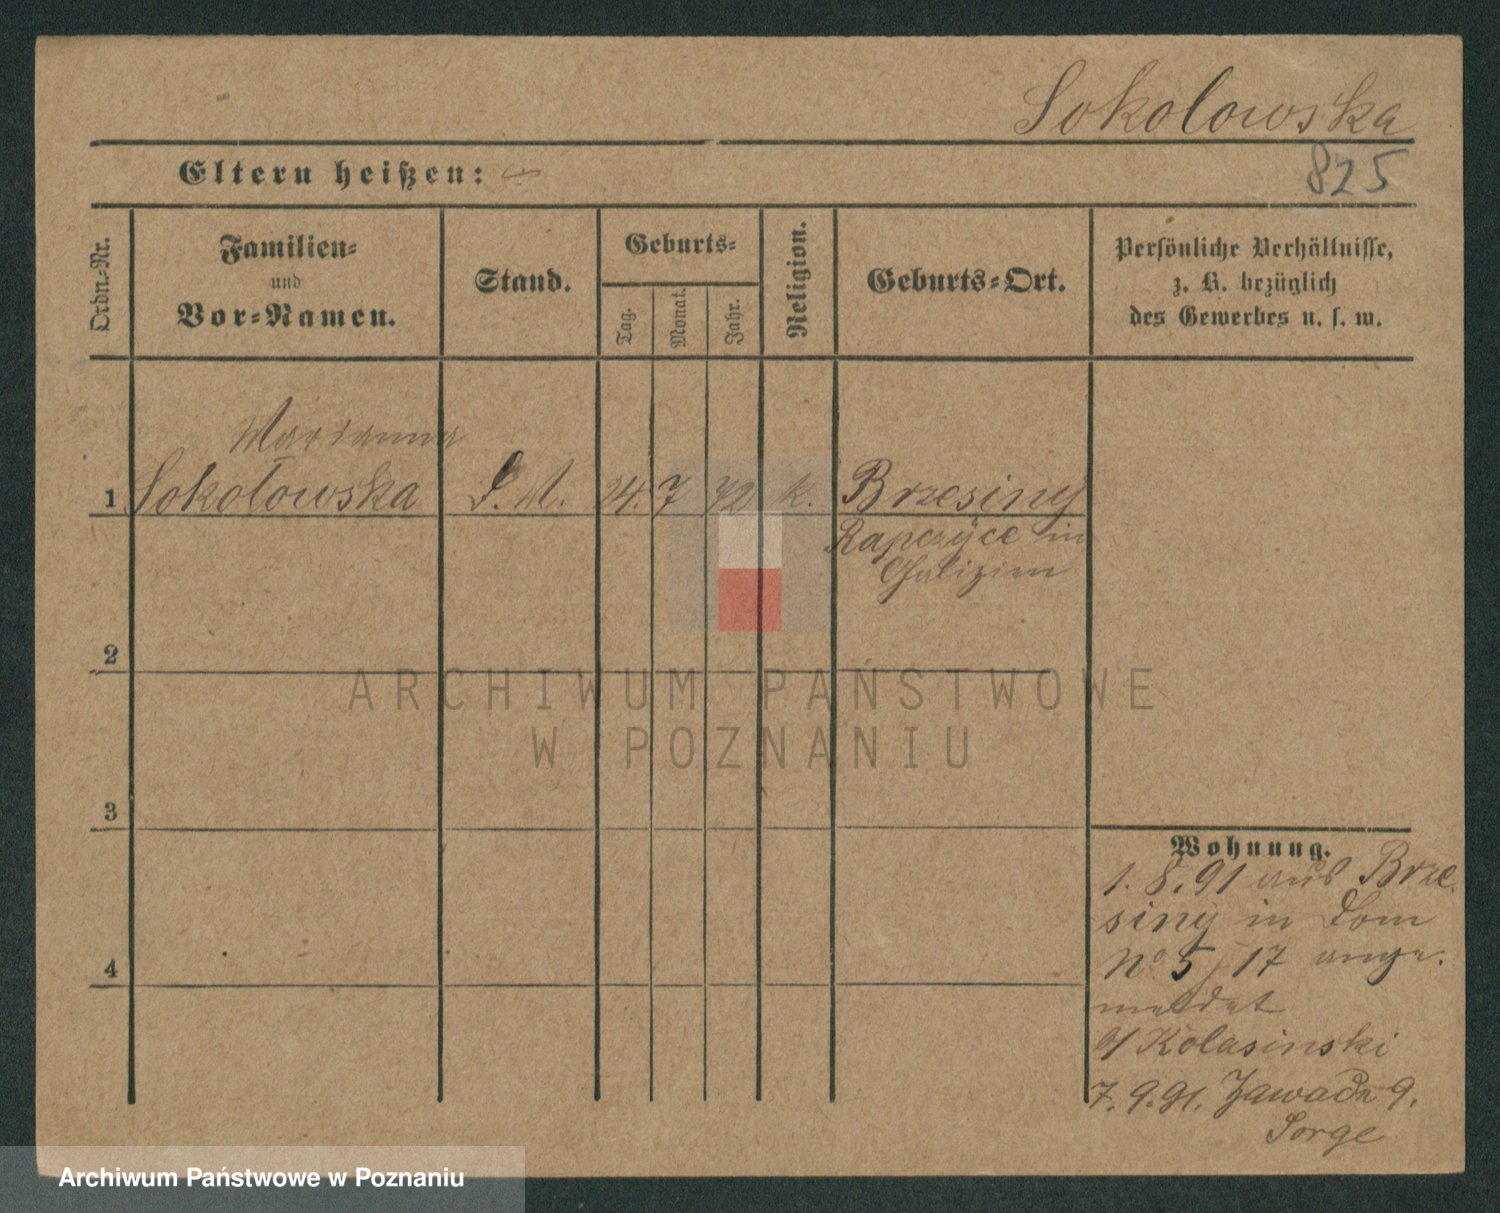 Sokolowska
825
Eltern heißen: —
Ordn.-Nr.
Familien-
und
Vor-Namen.
Stand.
Geburts-
Tag.
Monat.
Jahr.
Religion.
Geburts-Ort.
Persönliche Verhältnisse,
z. B. bezüglich
des Gewerbes u. s. w.
Marianna
1 Sokołowska D. M. 24. 7 72 k. Brzesiny
Rapczyce in
Galizien
2
ARCHIWUM PAŃSTWOWE
W POZNANIU
3
4
Wohnung.
1. 8. 91 aus Brze-
siny in Dom
No 5/17 ange-
meldet
b/ Kolasinski
7. 9. 91. Zawade 9.
Sorge
Archiwum Państwowe w Poznaniu